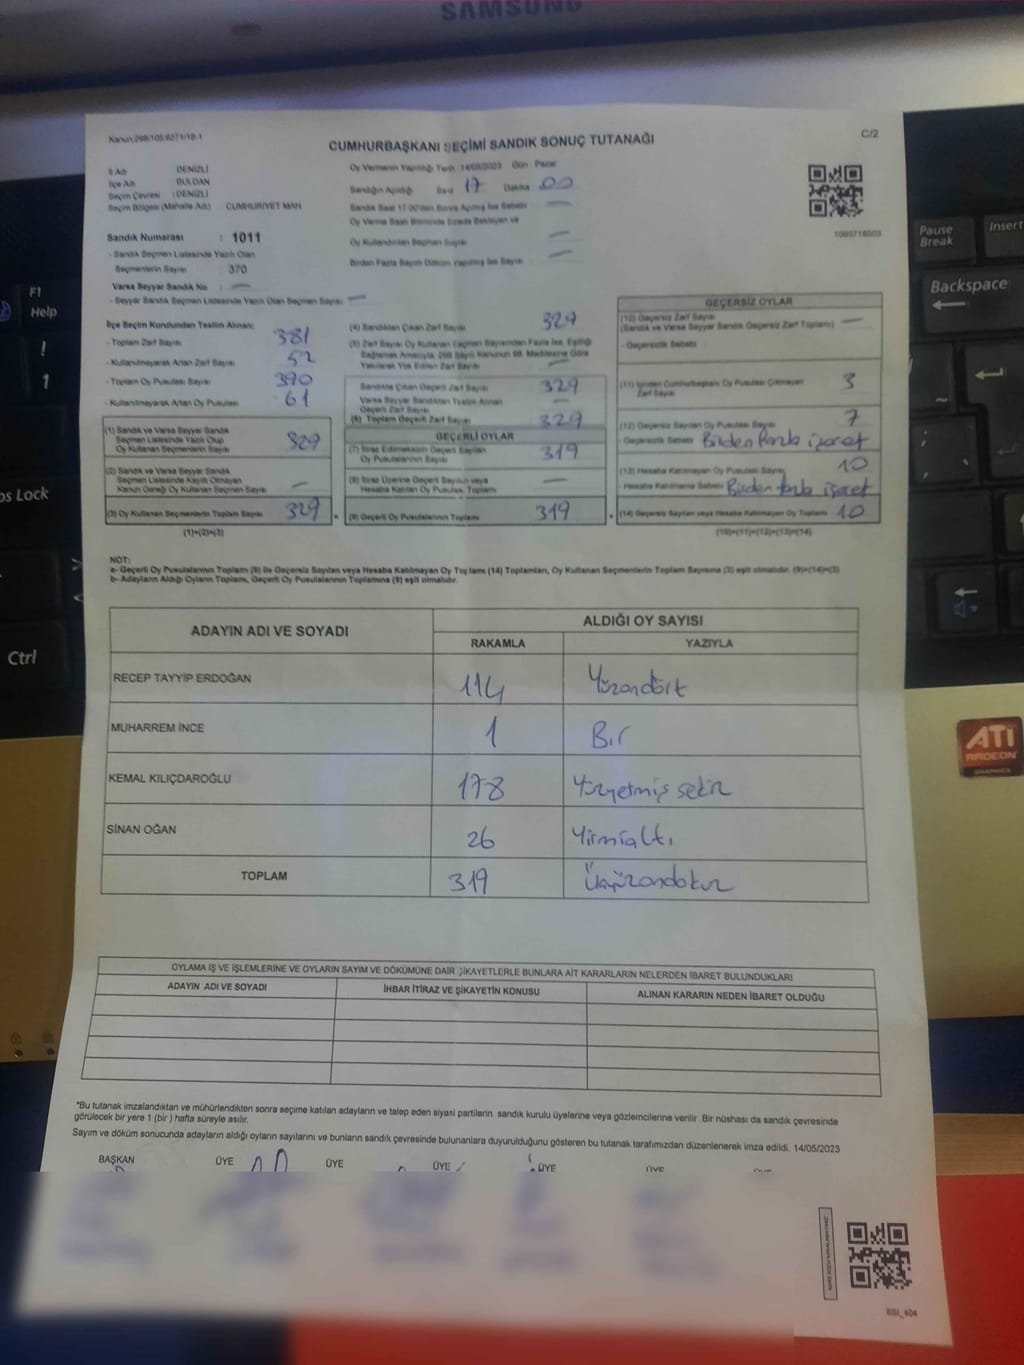 SAMSUNG
C/2
CUMHURBAŞKANI SEÇİMİ SANDIK SONUÇ TUTANAĞI
İl Adı DENİZLİ
İlçe Adı : BULDAN
Seçim Çevresi : DENİZLİ
Seçim Bölgesi (Mahalle Adı) CUMHURİYET MAH.
Sandık Numarası : 1011
- Sandık Seçmen Listesinde Yazılı Olan
Seçmenlerin Sayısı : 370
Varsa Seyyar Sandık No : —
- Seyyar Sandık Seçmen Listesinde Yazılı Olan Seçmen Sayısı —
Oy Vermenin Yapıldığı Tarih :14/05/2023 Gün : Pazar
Sandığın Açıldığı Saat 17 Dakika 00
Sandık Saat 17:00'den Sonra Açılmış İse Sebebi —
Oy Verme Saati Bitiminde Sırada Bekleyen ve
Oy Kullandırılan Seçmen Sayısı —
Birden Fazla Sayım Döküm yapılmış İse Sayısı —
İlçe Seçim Kurulundan Teslim Alınan;
- Toplam Zarf Sayısı 381
- Kullanılmayarak Artan Zarf Sayısı 52
- Toplam Oy Pusulası Sayısı 390
- Kullanılmayarak Artan Oy Pusulası 61
(1) Sandık ve Varsa Seyyar Sandık
Seçmen Listesinde Yazılı Olup
Oy Kullanan Seçmen Sayısı 329
(2) Sandık ve Varsa Seyyar Sandık
Seçmen Listesinde Kayıtlı Olmayan
Kanun Gereği Oy Kullanan Seçmen Sayısı —
(3) Oy Kullanan Seçmenlerin Toplam Sayısı 329
(1)+(2)=(3)
(4) Sandıktan Çıkan Zarf Sayısı 329
(5) Zarf Sayısı Oy Kullanan Seçmen Sayısından Fazla İse, Eşitliği
Sağlamak Amacıyla, 298 Sayılı Kanunun 98. Maddesine Göre
Yakılarak Yok Edilen Zarf Sayısı —
Sandıkta Çıkan Geçerli Zarf Sayısı 329
Varsa Seyyar Sandıktan Teslim Alınan
Geçerli Zarf Sayısı —
(6) Toplam Geçerli Zarf Sayısı 329
GEÇERLİ OYLAR
(7) İtiraz Edilmeksizin Geçerli Sayılan
Oy Pusulalarının Sayısı 319
(8) İtiraz Üzerine Geçerli Sayılan veya
Hesaba Katılan Oy Pusulası Toplamı —
(9) Geçerli Oy Pusulalarının Toplamı 319
GEÇERSİZ OYLAR
(10) Geçersiz Zarf Sayısı
(Sandık ve Varsa Seyyar Sandık Geçersiz Zarf Toplamı) —
- Geçersizlik Sebebi
(11) İçinden Cumhurbaşkanı Oy Pusulası Çıkmayan
Zarf Sayısı 3
(12) Geçersiz Sayılan Oy Pusulası Sayısı 7
- Geçersizlik Sebebi Birden fazla işaret
(13) Hesaba Katılmayan Oy Pusulası Sayısı 10
- Hesaba Katılmama Sebebi Birden fazla işaret
(14) Geçersiz Sayılan veya Hesaba Katılmayan Oy Toplamı 10
(10)+(11)+(12)+(13)=(14)
NOT:
a- Geçerli Oy Pusulalarının Toplamı (9) ile Geçersiz Sayılan veya Hesaba Katılmayan Oy Toplamı (14) Toplamları, Oy Kullanan Seçmenlerin Toplam Sayısına (3) eşit olmalıdır. (9)+(14)=(3)
b- Adayların Aldığı Oyların Toplamı, Geçerli Oy Pusulalarının Toplamına (9) eşit olmalıdır.
ADAYIN ADI VE SOYADI
ALDIĞI OY SAYISI
RAKAMLA YAZIYLA
RECEP TAYYİP ERDOĞAN 114 Yüzondört
MUHARREM İNCE 1 Bir
KEMAL KILIÇDAROĞLU 178 Yüzyetmiş sekiz
SİNAN OĞAN 26 Yirmialtı
TOPLAM 319 Üçyüzondokuz
OYLAMA İŞ VE İŞLEMLERİNE VE OYLARIN SAYIM VE DÖKÜMÜNE DAİR ŞİKAYETLERLE BUNLARA AİT KARARLARIN NELERDEN İBARET BULUNDUKLARI
ADAYIN ADI VE SOYADI İHBAR İTİRAZ VE ŞİKAYETİN KONUSU ALINAN KARARIN NEDEN İBARET OLDUĞU
*Bu tutanak imzalandıktan ve mühürlendikten sonra seçime katılan adayların ve talep eden siyasi partilerin sandık kurulu üyelerine veya gözlemcilerine verilir .Bir nüshası da sandık çevresinde
görülecek bir yere 1 (bir ) hafta süreyle asılır.
Sayım ve döküm sonucunda adayların aldığı oyların sayılarını ve bunların sandık çevresinde bulunanlara duyurulduğunu gösteren bu tutanak tarafımızdan düzenlenerek imza edildi. 14/05/2023
BAŞKAN ÜYE ÜYE ÜYE ÜYE ÜYE
F1
Help
!
1
Lock
Ctrl
Pause
Break
Insert
Backspace
ATI
RADEON
GRAPHICS